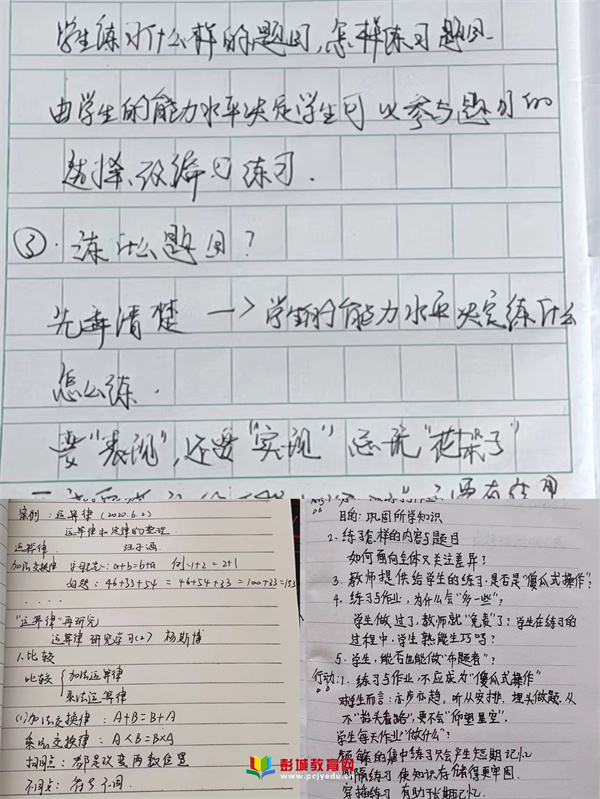 学生练习什么样的题目,怎样练习题目.
由学生的能力水平决定学生可以参与题目的
选择、改编的练习.
③.练什么题目?
先弄清楚 —> 学生的能力水平决定练什么
怎么练.
要“表现”,还要“实现”忌玩“花架子”
案例:运算律(2020.6.2)
运算律和定律的整理
运算律
加法交换律 字母表示:a+b=b+a 例:1+2=2+1
46+33+54=46+54+33=100+33=133
“运算律”再研究
运算律研究学习(2) 杨斯博
1.比较
比较 { 加法运算律
乘法运算律
(1)加法交换律:A+B=B+A
乘法交换律:A×B=B×A
相同点:都是改变两数位置
不同点:符号不同.
目的:巩固所学知识
2.练习怎样的内容与题目
如何面向全体又关注差异?
3.教师提供给学生的练习,是否是“傻瓜式操作”?
4.练习与作业,为什么会“多一些”?
学生做过了,教师就“免责”了?学生在练习的
过程中,学生熟能生巧吗?
5.学生,能否也能做“布题者”?
行动:1.练习与作业不应成为“傻瓜式操作”
对学生而言:亦步亦趋,听从安排,埋头做题,从
不“抬头看路”,更不会“仰望星空”.
学生每天作业“做什么”?
频繁的集中练习只会产生短期记忆
间隔练习使知识存储得更牢固.
穿插练习有助于长期记忆.
彭城教育网
www.pcjyedu.com